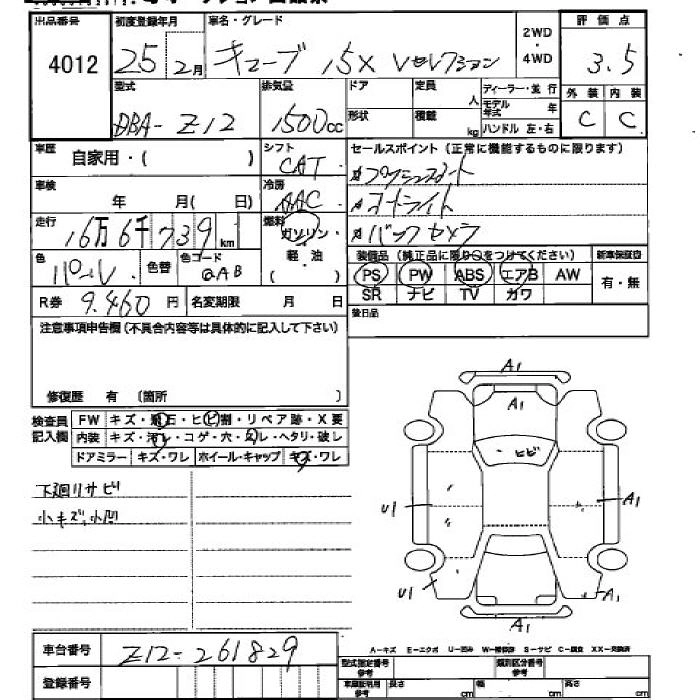 出品番号 初度登録年月 車名・グレード 2WD・4WD 評価点
4012 25年2月 キューブ 15X Vセレクション 3.5
型式 排気量 ドア 定員 人 ディーラー・並行 外装 内装
DBA-Z12 1500cc 形状 積載 kg モデル年式 年 C C
ハンドル 左・右
車歴 自家用・( ) シフト CAT セールスポイント (正常に機能するものに限ります)
プッシュスタート
車検 年 月( 日) 冷房 AAC オートライト
走行 16万6千739km 燃料 ガソリン・軽油・( ) バックカメラ
色 パール 色替 色コード QAB 装備品 (純正品に限り○をつけてください) 新車保証書
PS PW ABS エアB AW 有・無
SR ナビ TV カワ
R券 9.460円 名変期限 月 日 後日品
注意事項申告欄 (不具合内容等は具体的に記入して下さい)
修復歴 有 (箇所 )
検査員記入欄 FW キズ・飛石・ヒビ割・リペア跡・X要
内装 キズ・汚レ・コゲ・穴・スレ・ヘタリ・破レ
ドアミラー キズ・ワレ ホイール・キャップ キズ・ワレ
下廻リサビ
小キズ、小凹
A1
A1
ヒビ
U1 A1
U1 A1
A1
車台番号 Z12-261829
登録番号
A-キズ E-エクボ U-凹み W-補修跡 S-サビ C-腐食 XX-交換済
型式指定番号 参考 類別区分番号 参考
車庫証明用 参考 長さ cm 幅 cm 高さ cm